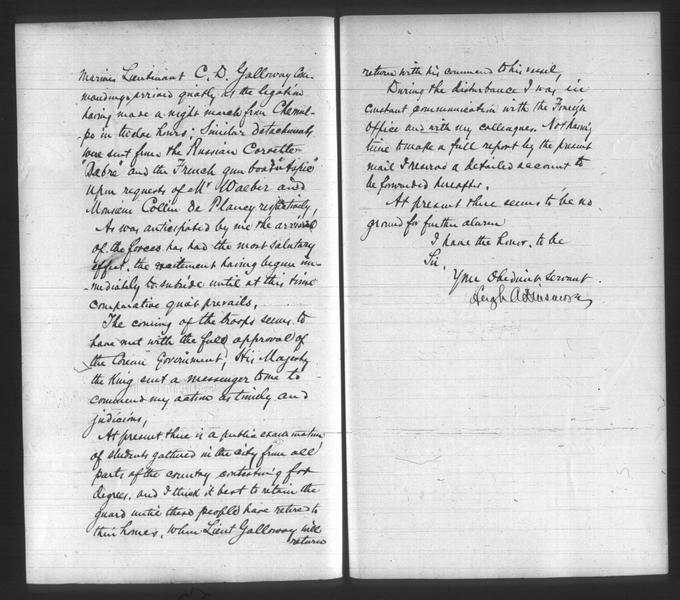 Marines Lieutenant C. D. Galloway Com-
manding arrived quietly at the legation
having made a night march from Chemul-
-po in twelve hours; Similar detachments
were sent from the Russian Corvette
and the French gun boat "Aspic"
upon requests of Mr Waeber and
Monsieur Collin de Plancy respectively,
As was anticipated by me the arrival
of the forces has had the most salutary
effect. the excitement having begun im-
-mediately to subside until at this time
comparative quiet prevails.
The coming of the troops seems to
have met with the full approval of
the Corean Government, His Majesty
the King sent a messenger to me to
commend my action as timely and
judicious,
At present there is a public examination
of students gathered in the city from all
parts of the country contesting for
degrees. and I think it best to retain the
guard until these people have retired to
their homes, when Lieut Galloway will
return
return with his command to his vessel,
During the disturbance I was in
constant communication with the Foreign
Office and with my colleagues. Not having
time to make a full report by the present
mail I reserve a detailed account to
be forwarded hereafter.
At present there seems to be no
ground for further alarm
I have the honor, to be
Sir,
Your Obedient servant.
Hugh A Dinsmore